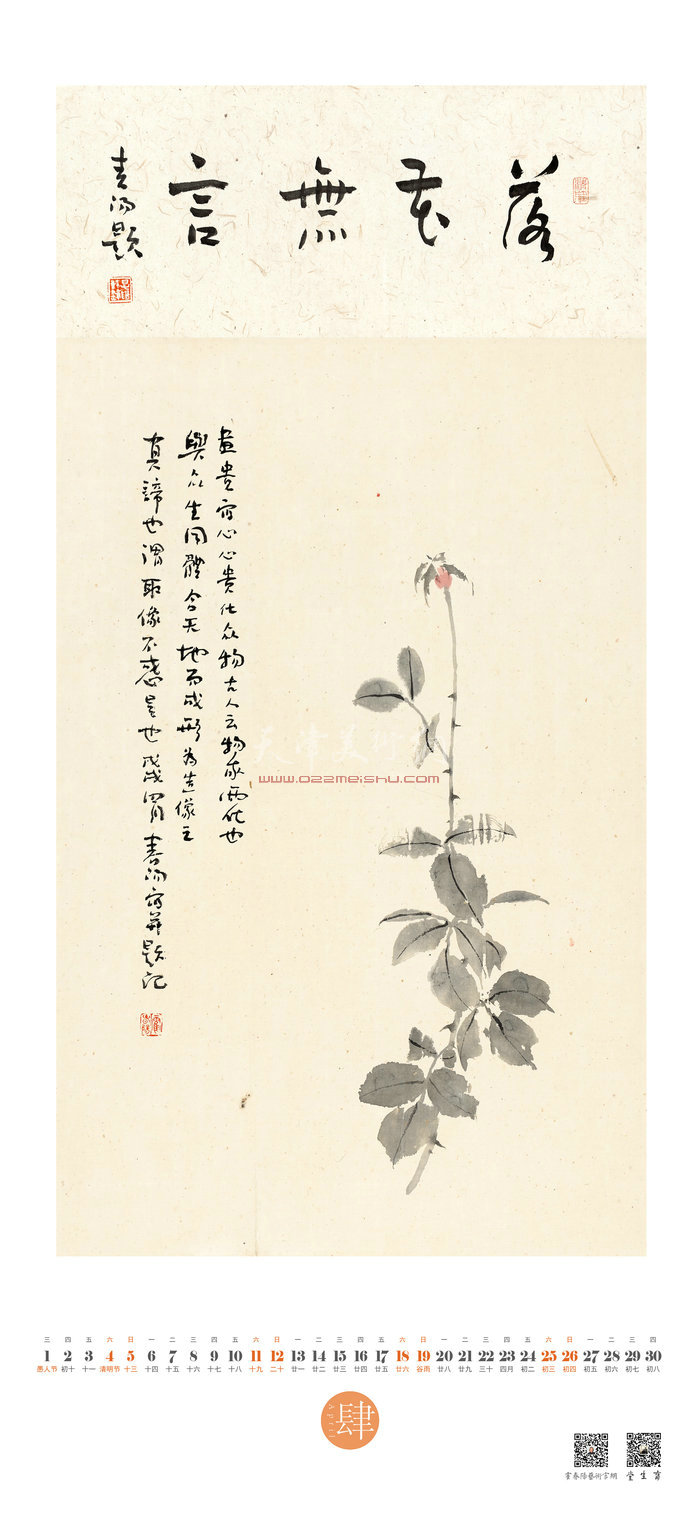 落花無言
春陽題
畫貴寫心心貴化众物古人云物我兩化也
與众生同體合天地而成形為造像之
真諦也謂取像不惑是也戊戌春陽寫并題記
天津美術网
www.022meishu.com
三 四 五 六 日 一 二 三 四 五 六 日 一 二 三 四 五 六 日 一 二 三 四 五 六 日 一 二 三 四
1 2 3 4 5 6 7 8 9 10 11 12 13 14 15 16 17 18 19 20 21 22 23 24 25 26 27 28 29 30
愚人节 初十 十一 清明节 十三 十四 十五 十六 十七 十八 十九 二十 廿一 廿二 廿三 廿四 廿五 廿六 谷雨 廿八 廿九 三十 四月 初二 初三 初四 初五 初六 初七 初八
April
肆
霍春陽藝術官網
育生堂